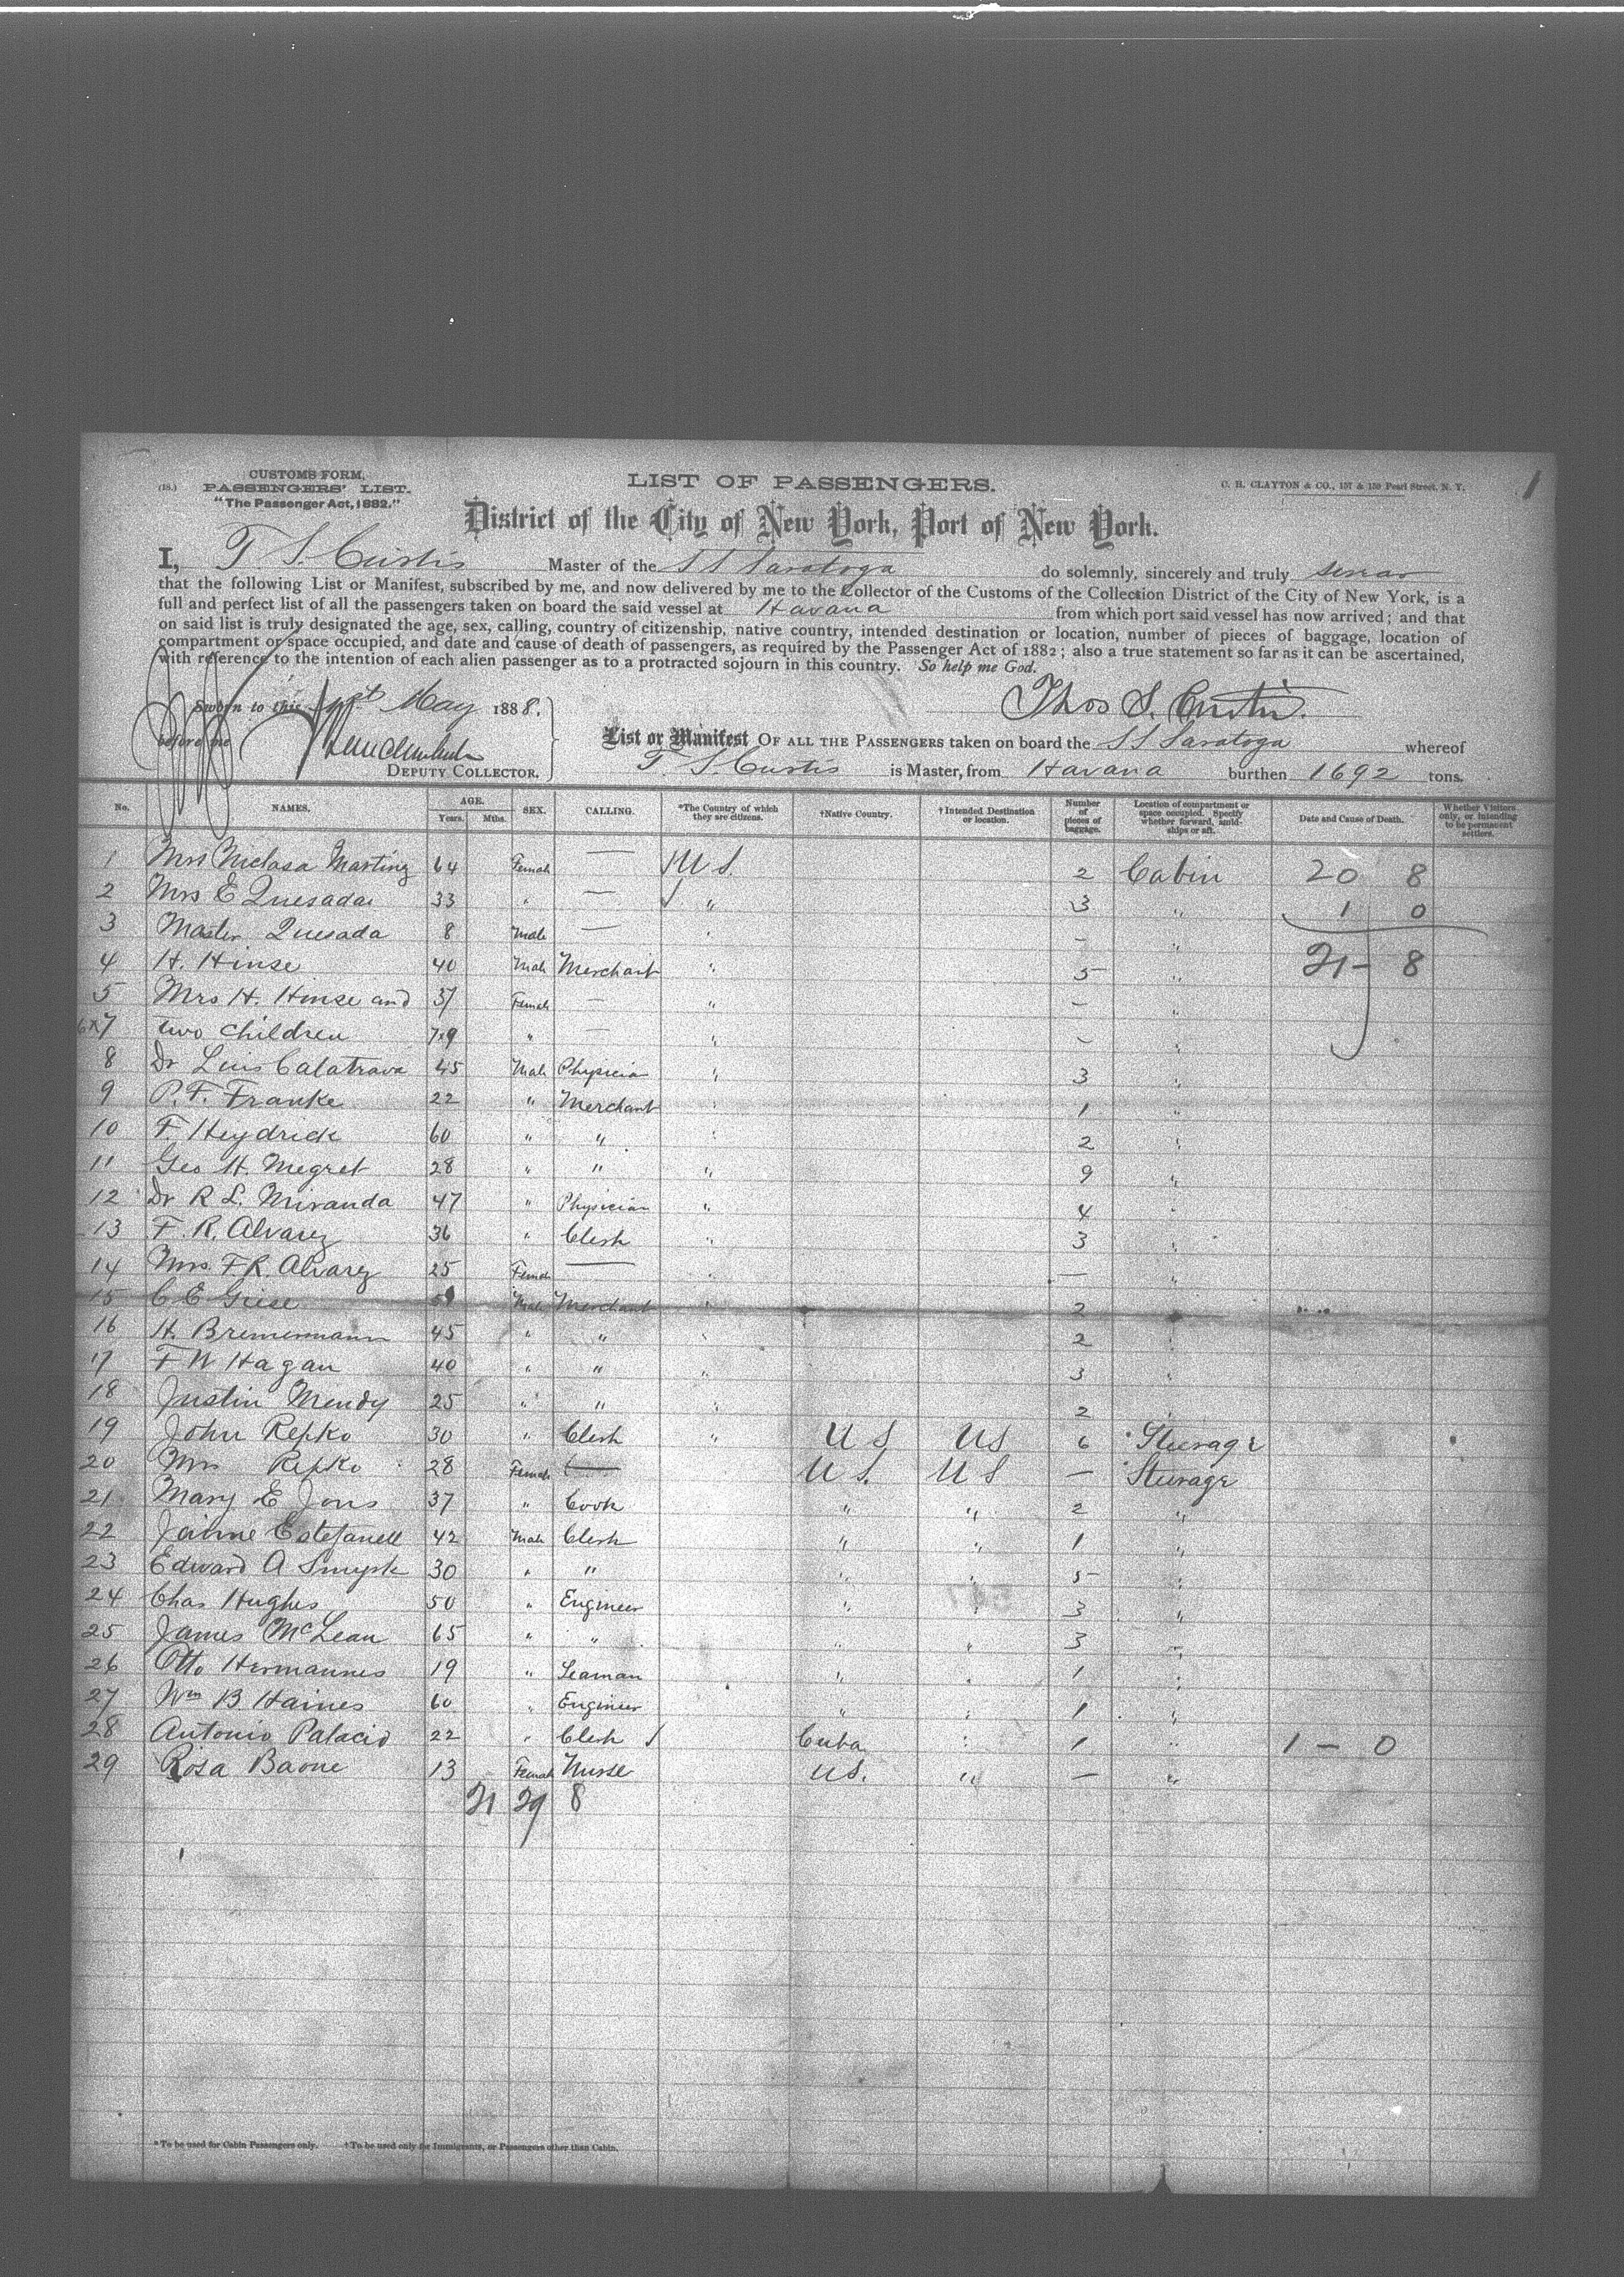 1
CUSTOMS FORM,
(18.) PASSENGERS' LIST.
"The Passenger Act, 1882."
LIST OF PASSENGERS.
C. H. CLAYTON & CO., 157 & 159 Pearl Street, N. Y.
District of the City of New York, Port of New York.
I, T. S. Curtis Master of the SS Saratoga do solemnly, sincerely and truly swear
that the following List or Manifest, subscribed by me, and now delivered by me to the Collector of the Customs of the Collection District of the City of New York, is a
full and perfect list of all the passengers taken on board the said vessel at Havana from which port said vessel has now arrived; and that
on said list is truly designated the age, sex, calling, country of citizenship, native country, intended destination or location, number of pieces of baggage, location of
compartment or space occupied, and date and cause of death of passengers, as required by the Passenger Act of 1882; also a true statement so far as it can be ascertained,
with reference to the intention of each alien passenger as to a protracted sojourn in this country. So help me God.
Sworn to this May 1888.
Thos S. Curtis.
before me
DEPUTY COLLECTOR.
List or Manifest OF ALL THE PASSENGERS taken on board the SS Saratoga whereof
T. S. Curtis is Master, from Havana burthen 1692 tons.
No. NAMES. AGE. Years. Mths. SEX. CALLING. *The Country of which they are citizens. †Native Country. †Intended Destination or location. Number of pieces of baggage. Location of compartment or space occupied. Specify whether forward, amidships or aft. Date and Cause of Death. Whether Visitors only, or intending to be permanent settlers.
1 Mrs Niclasa Marting 64 Female — U S. 2 Cabin 20 8
2 Mrs E Quesada 33 " — " 3 " 1 0
3 Master Quesada 8 Male — " — " 21 - 8
4 H. Hinse 40 Male Merchant " 5 "
5 Mrs H. Hinse and 37 Female — " — "
6x7 two children 7x9 " — " — "
8 Dr Luis Calatrava 45 Male Physician " 3 "
9 P. F. Franke 22 " Merchant " 1 "
10 F. Heydrich 60 " " " 2 "
11 Geo H. Megret 28 " " " 9 "
12 Dr R L. Miranda 47 " Physician " 4 "
13 F. R. Alvarez 36 " Clerk " 3 "
14 Mrs. F. R. Alvarez 25 Female — " — "
15 C E Giese Male Merchant " 2 "
16 H. Bremermann 45 " " " 2 "
17 F W Hagan 40 " " " 3 "
18 Justin Mendy 25 " " " 2 "
19 John Repko 30 " Clerk " U S U S 6 Steerage
20 Mrs Repko 28 Female — U S. U S — Steerage
21 Mary E Jons 37 " Cook " " 2 "
22 Jaime Estefanell 42 Male Clerk " " 1 "
23 Edward A 30 " " " " 5 "
24 Chas Hughes 50 " Engineer " " 3 "
25 James McLean 65 " " " " 3 "
26 Otto Hermannes 19 " Seaman " " 1 "
27 Wm B. Haines 60 " Engineer " " 1 "
28 Antonio Palacio 22 " Clerk Cuba " 1 " 1 - 0
29 Rosa Baone 13 Female Nurse U S. " — "
21 29 8
*To be used for Cabin Passengers only. †To be used only for Immigrants, or Passengers other than Cabin.